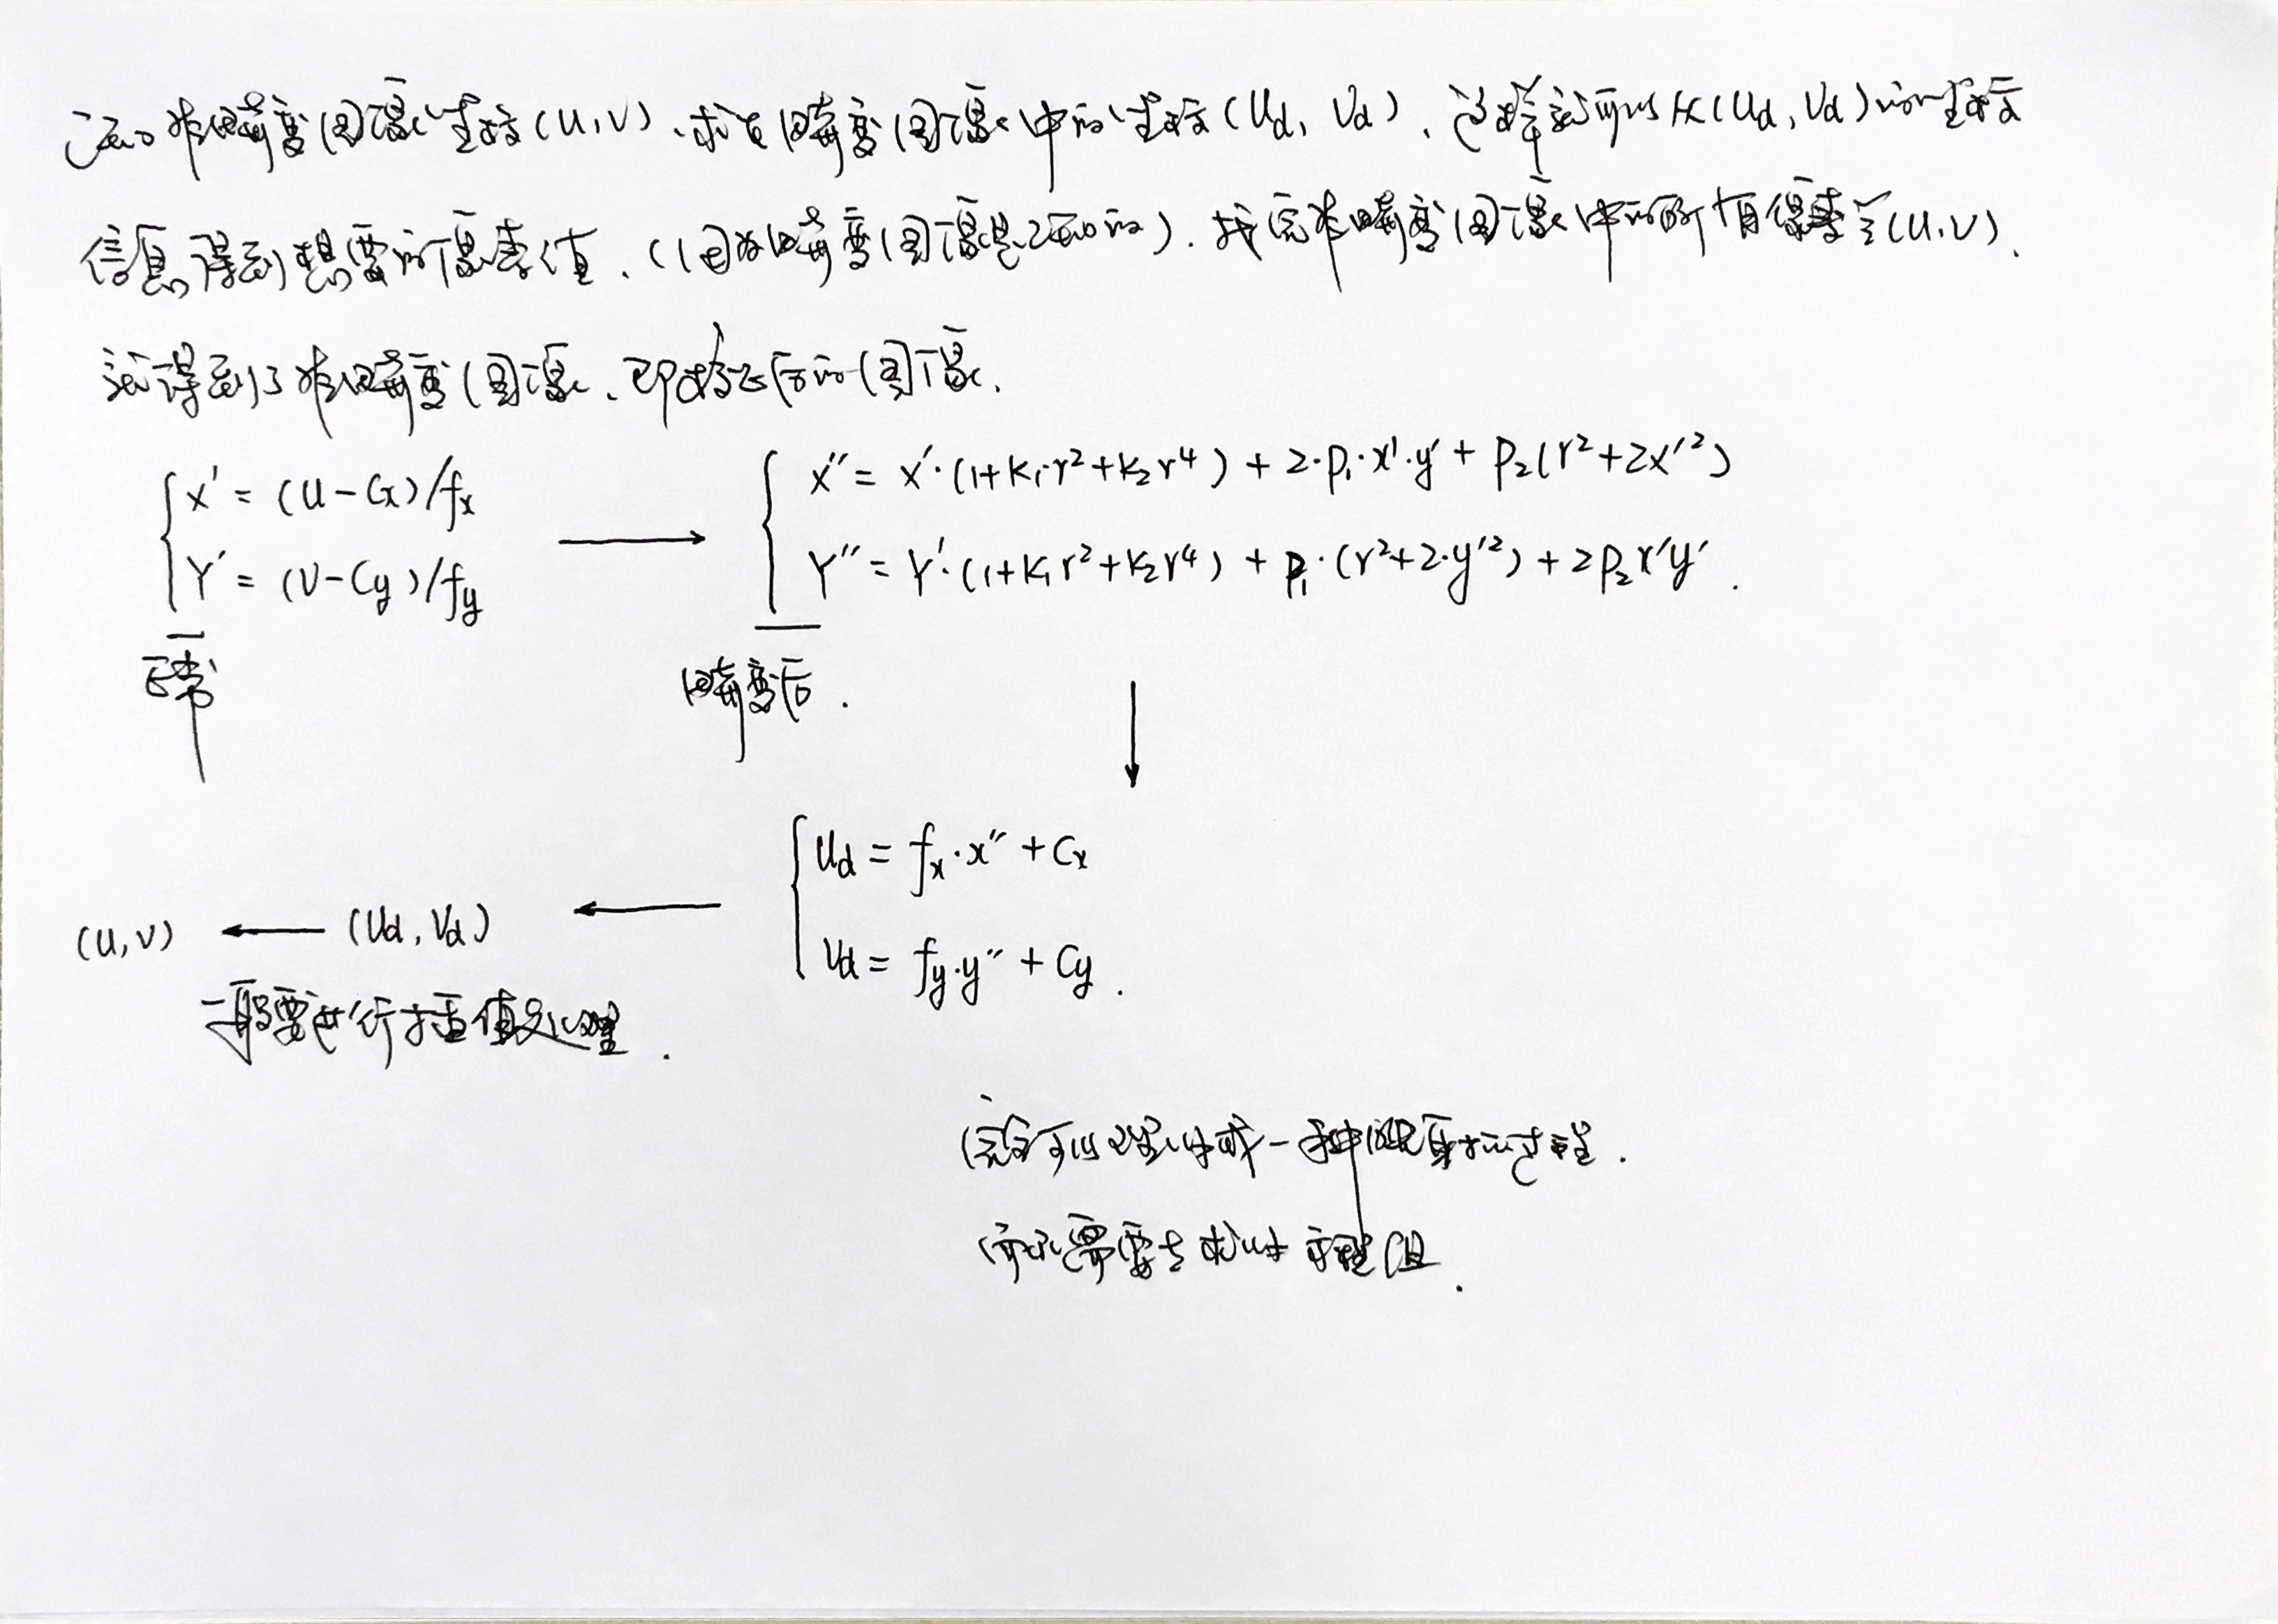 已知非畸变图像坐标(U,V),求在畸变图像中的坐标(Ud,Vd),这样就可以从(Ud,Vd)的坐标
信息得到想要的像素值,(因为畸变图像是已知的).找完非畸变图像中的所有像素三(U,V).
就得到了非畸变图像,即校正后的图像.
x' = (U-Cx)/fx
Y' = (V-Cy)/fy
正常
x'' = x'·(1+k₁·r²+k₂r⁴) + 2·p₁·x'·y' + p₂(r²+2x'²)
Y'' = Y'·(1+k₁r²+k₂r⁴) + p₁·(r²+2·y'²) + 2p₂x'y'.
畸变后.
Ud = fx·x'' + Cx
Vd = fy·y'' + Cy.
(U,V) ← (Ud,Vd)
一般要进行插值处理.
可以理解成一种映射的过程.
而不需要去求解方程组.